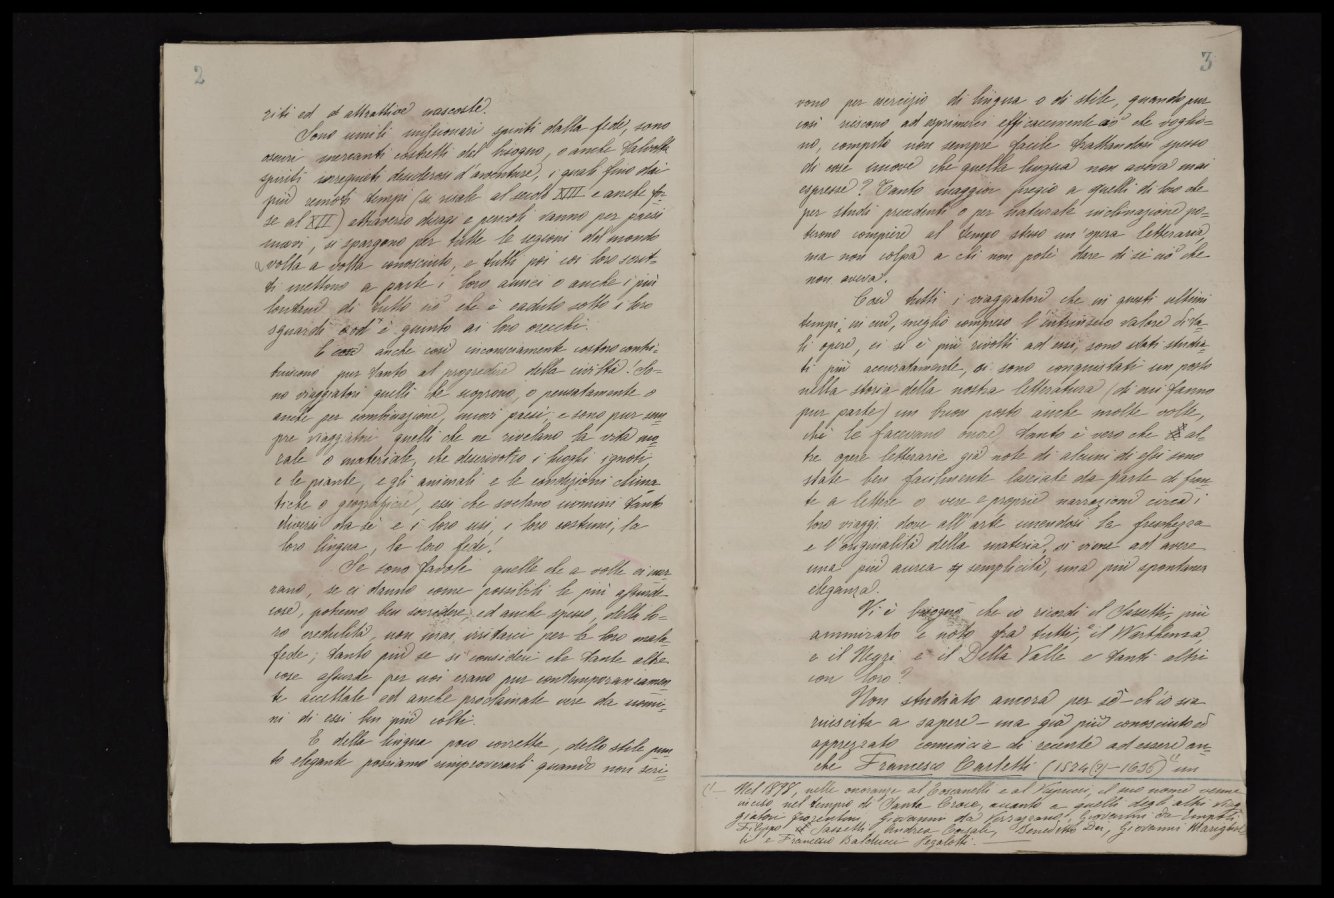 2
riti ed attrattive nascoste.
Sono umili missionari spinti dalla fede, sono
oscuri mercanti costretti dal bisogno, o anche talvolta
spiriti irrequieti desiderosi d'avventure, i quali fino dai
più remoti tempi (si risale al secolo XIII e anche for-
se al XII) attraverso disagi e pericoli vanno per paesi
nuovi, si spargono per tutte le regioni del mondo
volta a volta conosciuto, e tutti poi coi loro scrit-
ti mettono a parte i loro amici o anche i più
lontani di tutto ciò che è caduto sotto i loro
sguardi od è giunto ai loro orecchi.
E così anche inconsciamente costoro contri-
buiscono pur tanto al progredire della civiltà. So-
no viaggiatori quelli che scoprono, o pensatamente o
anche per combinazione, nuovi paesi, e sono pur sem-
pre viaggiatori quelli che ne rivelano la vita mo-
rale o materiale, che descrivono i luoghi ignoti,
e le piante, e gli animali e le condizioni clima-
tiche o geografiche, essi che svelano uomini tanto
diversi da sè e i loro usi, i loro costumi, la
loro lingua, la loro fede!
Se sono favole quelle che a volte ci nar-
rano, se ci danno come possibili le più assurde
cose, potremo ben sorridere, ed anche spesso, della lo-
ro credulità, non mai irritarci per la loro mala-
fede; tanto più se si consideri che tante altre
cose assurde per noi erano pur contemporaneamen-
te accettate ed anche proclamate vere da uomi-
ni di essi ben più colti.
E della lingua poco corretta, dello stile pun-
to elegante possiamo rimproverarli quando non scri-
3
vono per esercizio di lingua o di stile, quando pur
così riescono ad esprimerci efficacemente ciò che voglio-
no, compito non sempre facile trattandosi spesso
di cose nuove che quella lingua non aveva mai
espresse? Tanto maggior pregio a quelli di loro che
per studi precedenti o per naturale inclinazione po-
terono compiere al tempo stesso un'opera letteraria,
ma non colpa a chi non potè dare di sè ciò che
non aveva.
Così tutti i viaggiatori che in questi ultimi
tempi, in cui, meglio compreso l'intrinseco valore di ta-
li opere, ci si è più rivolti ad essi, sono stati studia-
ti più accuratamente, si sono conquistati un posto
nella storia della nostra letteratura (di cui fanno
pur parte) un buon posto anche molte volte,
chè le facevano onore tanto è vero che al-
tre opere letterarie già note di alcuni di essi sono
state ben facilmente lasciate da parte di fron-
te a lettere o vere e proprie narrazioni circa i
loro viaggi dove all'arte unendosi la freschezza
e l'originalità della materia, si viene ad avere
una più aurea semplicità, una più spontanea
eleganza.
Vi è bisogno che io ricordi il Sassetti, più
ammirato e noto fra tutti, e il Warthema,
e il Negri e il Della Valle e tanti altri
con loro?
Non studiato ancora per sè — ch'io sia
riuscita a sapere — ma già più conosciuto ed
apprezzato comincia di recente ad essere an-
che Francesco Carletti (1524(?)-1636)(1) un
(1— Nel 1898, nelle onoranze al Toscanelli e al Vespucci, il suo nome venne
inciso nel tempio di Santa Croce, accanto a quello degli altri viag-
giatori fiorentini, Giovanni da Verrazzano, Giovanni da Empoli,
Filippo Sassetti, Andrea Corsali, Benedetto Dei, Giovanni Marignol-
li e Francesco Balducci Pegolotti.